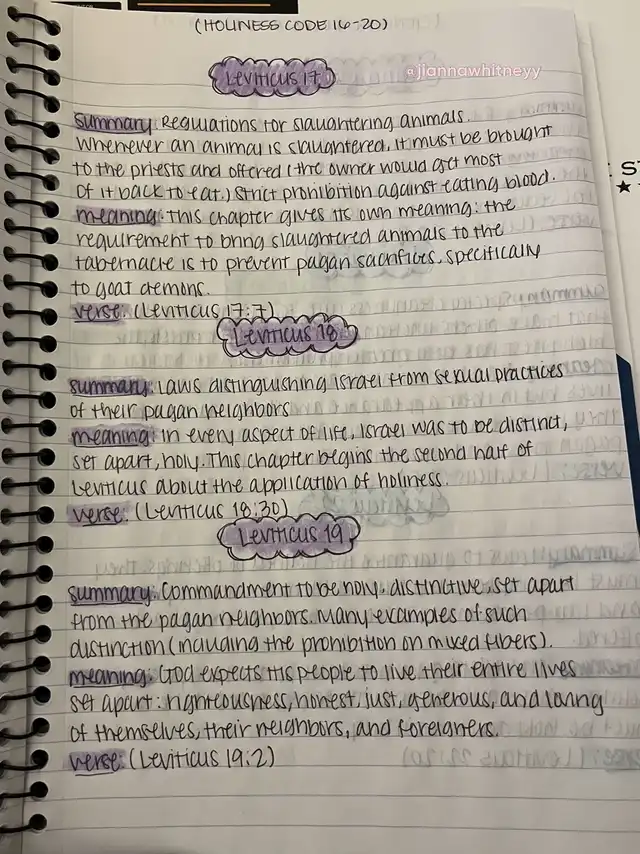 (HOLINESS CODE 16-20)
Leviticus 17
@jiannawhitneyy
summary: Regulations for slaughtering animals.
Whenever an animal is slaughtered, it must be brought
to the priests and offered (the owner would get most
of it back to eat.) Strict prohibition against eating blood.
meaning: This chapter gives its own meaning: the
requirement to bring slaughtered animals to the
tabernacle is to prevent pagan sacrifices, specifically
to goat demons.
verse: (Leviticus 17:7)
Leviticus 18
summary: Laws distinguishing Israel from sexual practices
of their pagan neighbors
meaning: in every aspect of life, Israel was to be distinct,
set apart, holy. This chapter begins the second half of
Leviticus about the application of holiness.
verse: (Leviticus 18:30)
Leviticus 19
summary: Commandment to be holy, distinctive, set apart
from the pagan neighbors. Many examples of such
distinction (including the prohibition on mixed fibers).
meaning: God expects His people to live their entire lives
set apart: righteousness, honest, just, generous, and loving
of themselves, their neighbors, and foreigners.
verse: (Leviticus 19:2)